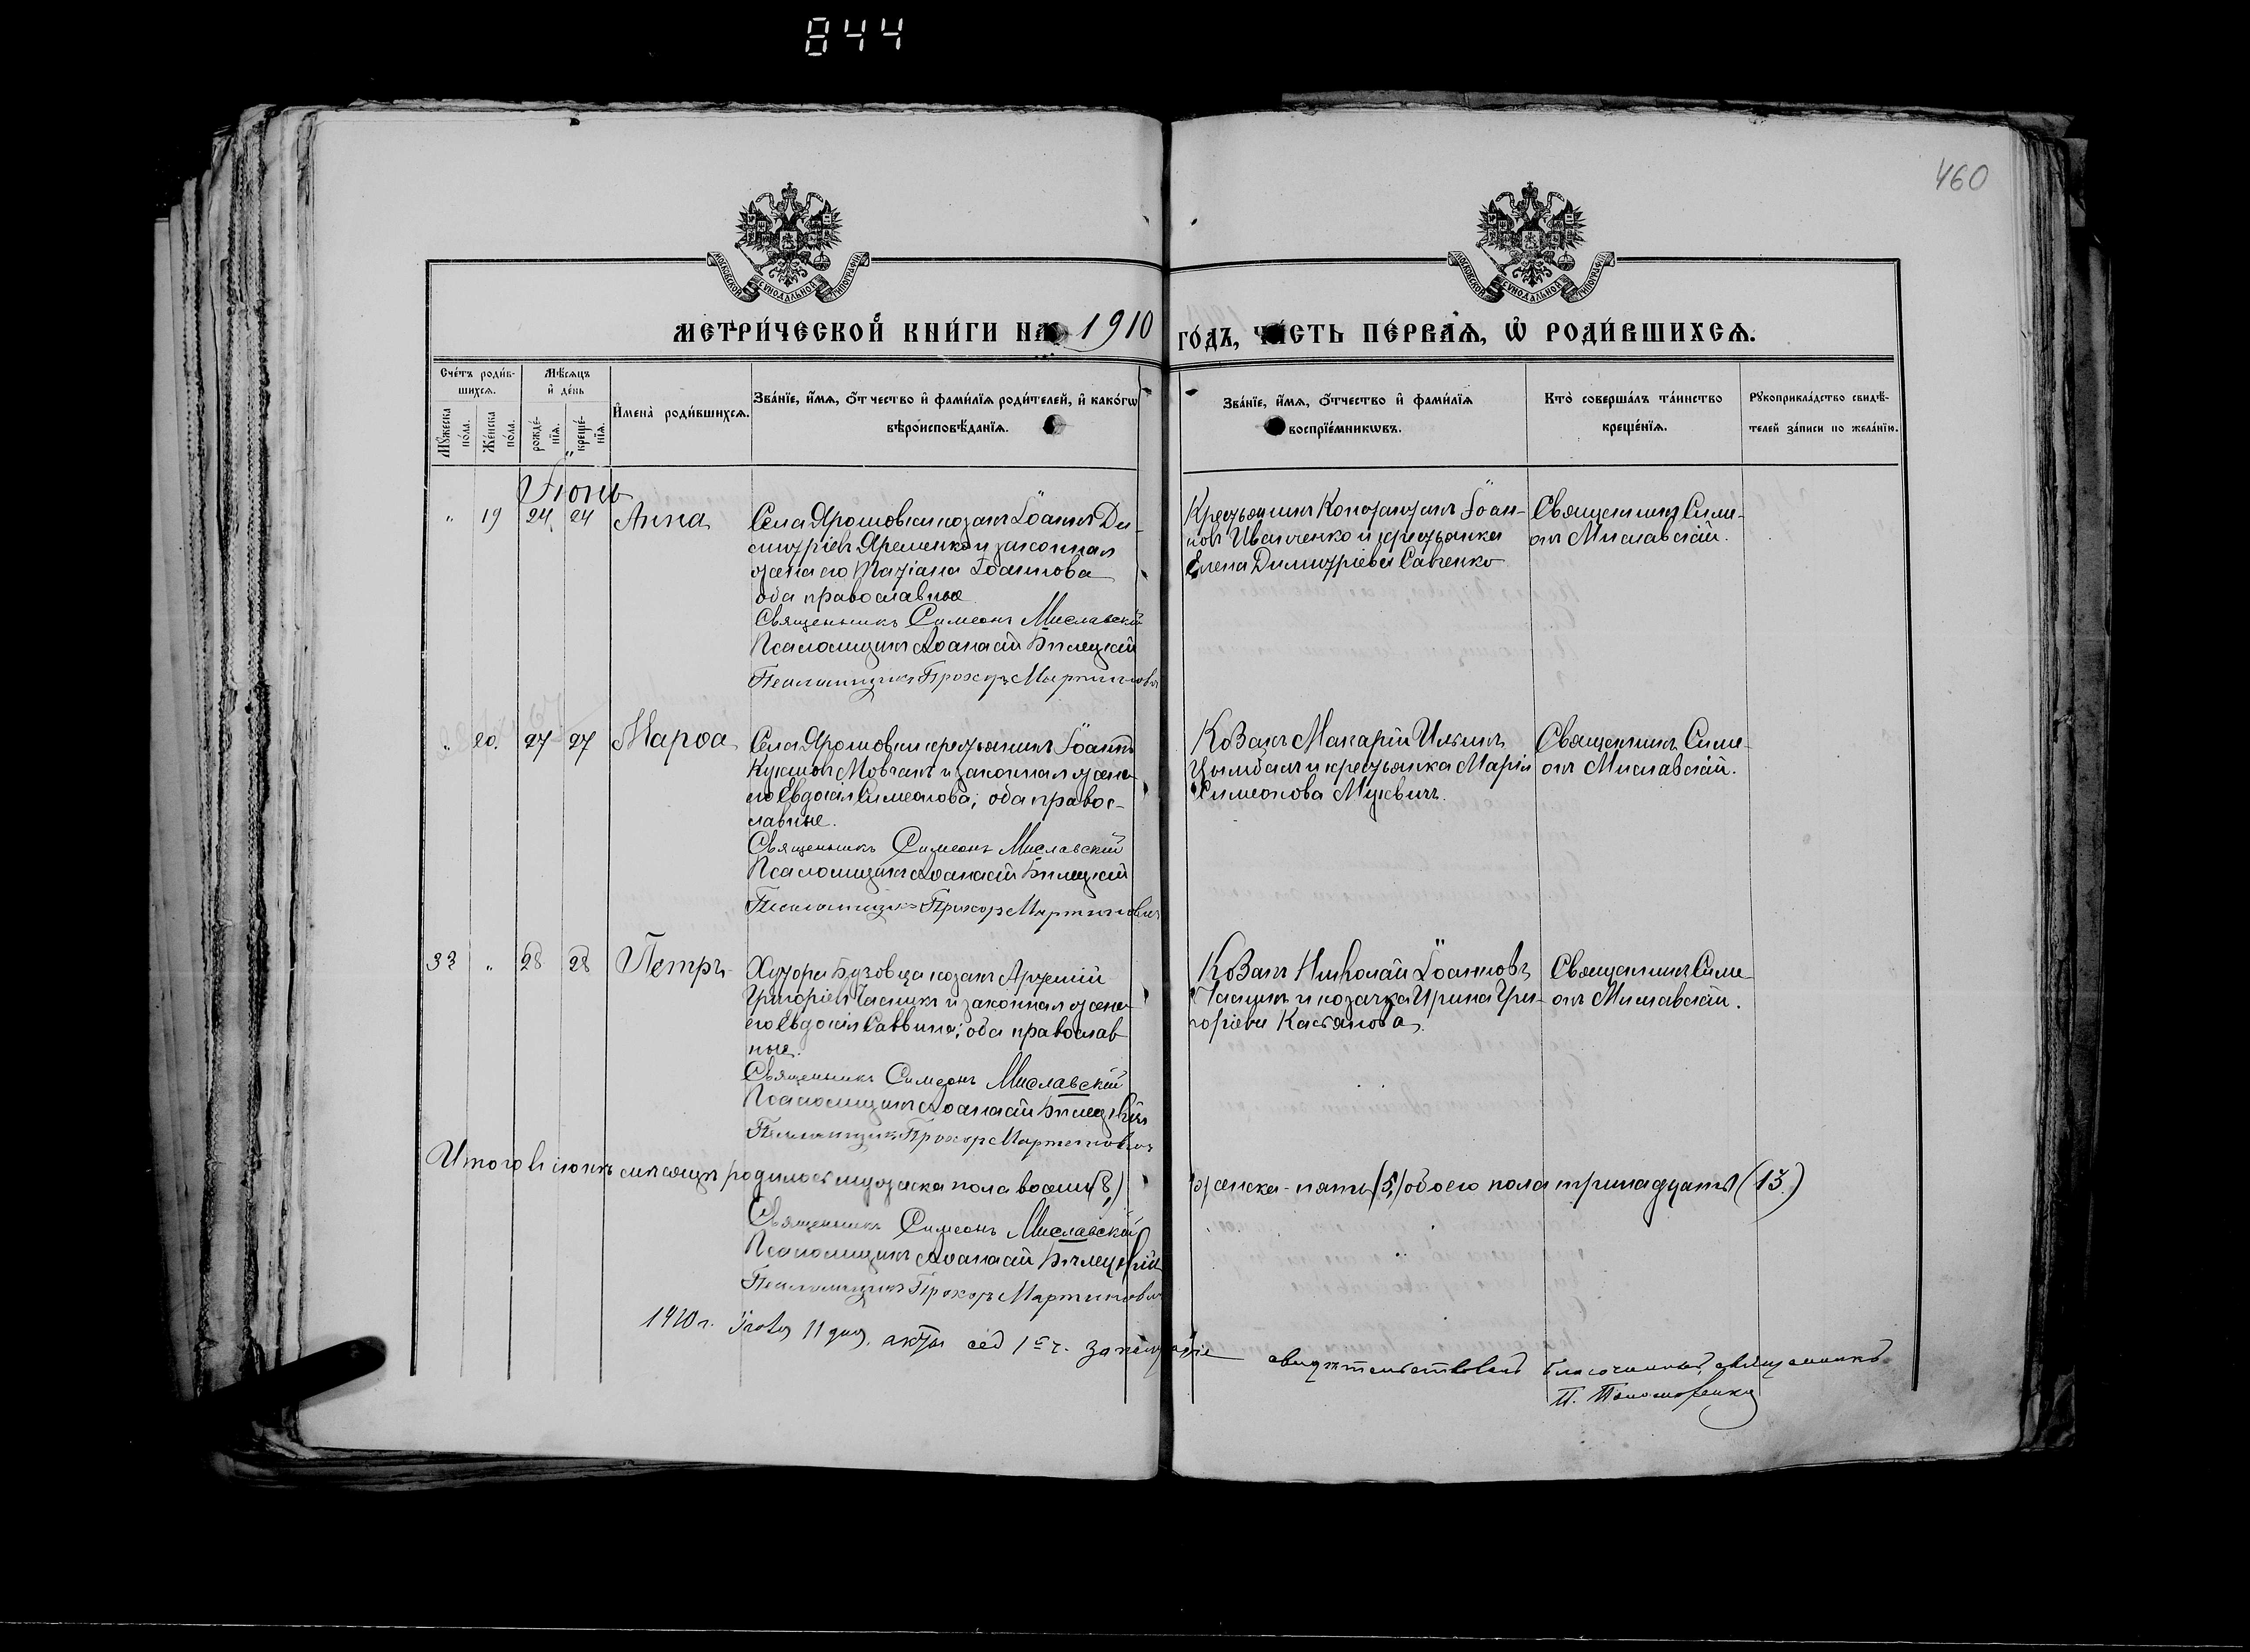 844
460
МОСКОВСКОЙ СѴНОДАЛЬНОЙ ТИПОГРАФІИ
МОСКОВСКОЙ СѴНОДАЛЬНОЙ ТИПОГРАФІИ
МЕТРИ́ЧЕСКОЙ КНИ́ГИ НА 1910 ГО́ДЪ, ЧА́СТЬ ПЕ́РВАѦ, Ѡ҆ РОДИ́ВШИХСѦ.
Сче́тъ роди́в-
шихсѧ.
Мꙋ́жеска
по́ла.
Же́нска
по́ла.
Мѣ́сѧцъ
и҆ де́нь
рожде́-
нїѧ.
креще́-
нїѧ.
И҆мена̀ роди́вшихсѧ.
Зва́нїе, и҆́мѧ, ѻ҆́тчество и҆ фами́лїѧ роди́телей, и҆ како́гѡ
вѣроисповѣ́данїѧ.
Зва́нїе, и҆́мѧ, ѻ҆́тчество и҆ фами́лїѧ
воспрїе́мникѡвъ.
Кто̀ соверша́лъ та́инство
креще́нїѧ.
Рꙋкоприкла́дство свидѣ́-
телей за́писи по жела́нїю.
Іюнь
" 19 24 24 Анна
Села Ярошовки козакъ Іоаннъ Ди-
митріевъ Яременко и законная
жена его Татіана Іоаннова
оба православные
Священникъ Симеонъ Миславскій
Псаломщикъ Аѳанасій Бѣлецкій
Псаломщикъ Прохоръ Мартиновичъ
Крестьянинъ Константинъ Іоан-
новъ Иванченко и крестьянка
Елена Димитріева Савченко
Священникъ Симе-
онъ Миславскій.
" 20. 27 27 Марѳа
Села Ярошовки крестьянинъ Іоаннъ
Мовчанъ и законная жена
его Евдокія Симеонова; оба правос-
лавные.
Священникъ Симеонъ Миславскій
Псаломщикъ Аѳанасій Бѣлецкій
Псаломщикъ Прохоръ Мартиновичъ
Козакъ Макарій Ильинъ
Цымбалъ и крестьянка Марія
Симеонова
Священникъ Симе-
онъ Миславскій.
33 " 28 28 Петръ
Хутора козакъ Артемій
Григоріевъ Часникъ и законная жена
его Евдокія Саввина; оба православ
ные.
Священникъ Симеонъ Миславскій
Псаломщикъ Аѳанасій Бѣлецкій
Псаломщикъ Прохоръ Мартиновичъ
Козакъ Николай Іоанновъ
Часникъ и козачка Ирина Гри-
горіева Касьянова.
Священникъ Симе-
онъ Миславскій.
Итого въ іюнѣ мѣсяцѣ родилось мужеска пола восемь (8) женска - пять (5,) обоего пола тринадцать (13.)
Священникъ Симеонъ Миславскій
Псаломщикъ Аѳанасій Бѣлецкій
Псаломщикъ Прохоръ Мартиновичъ
1910 г. 11 дня. акты 1й ч. за свидѣтельствовалъ Благочинный, священникъ
П. Пономаренко